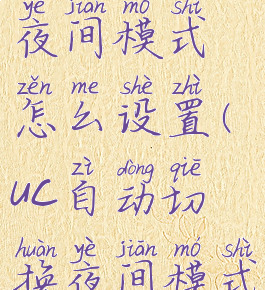 yè jiān mó shì
夜间模式
zěn me shè zhì
怎么设置(
zì dòng qiē
UC自动切
huàn yè jiān mó shì
换夜间模式